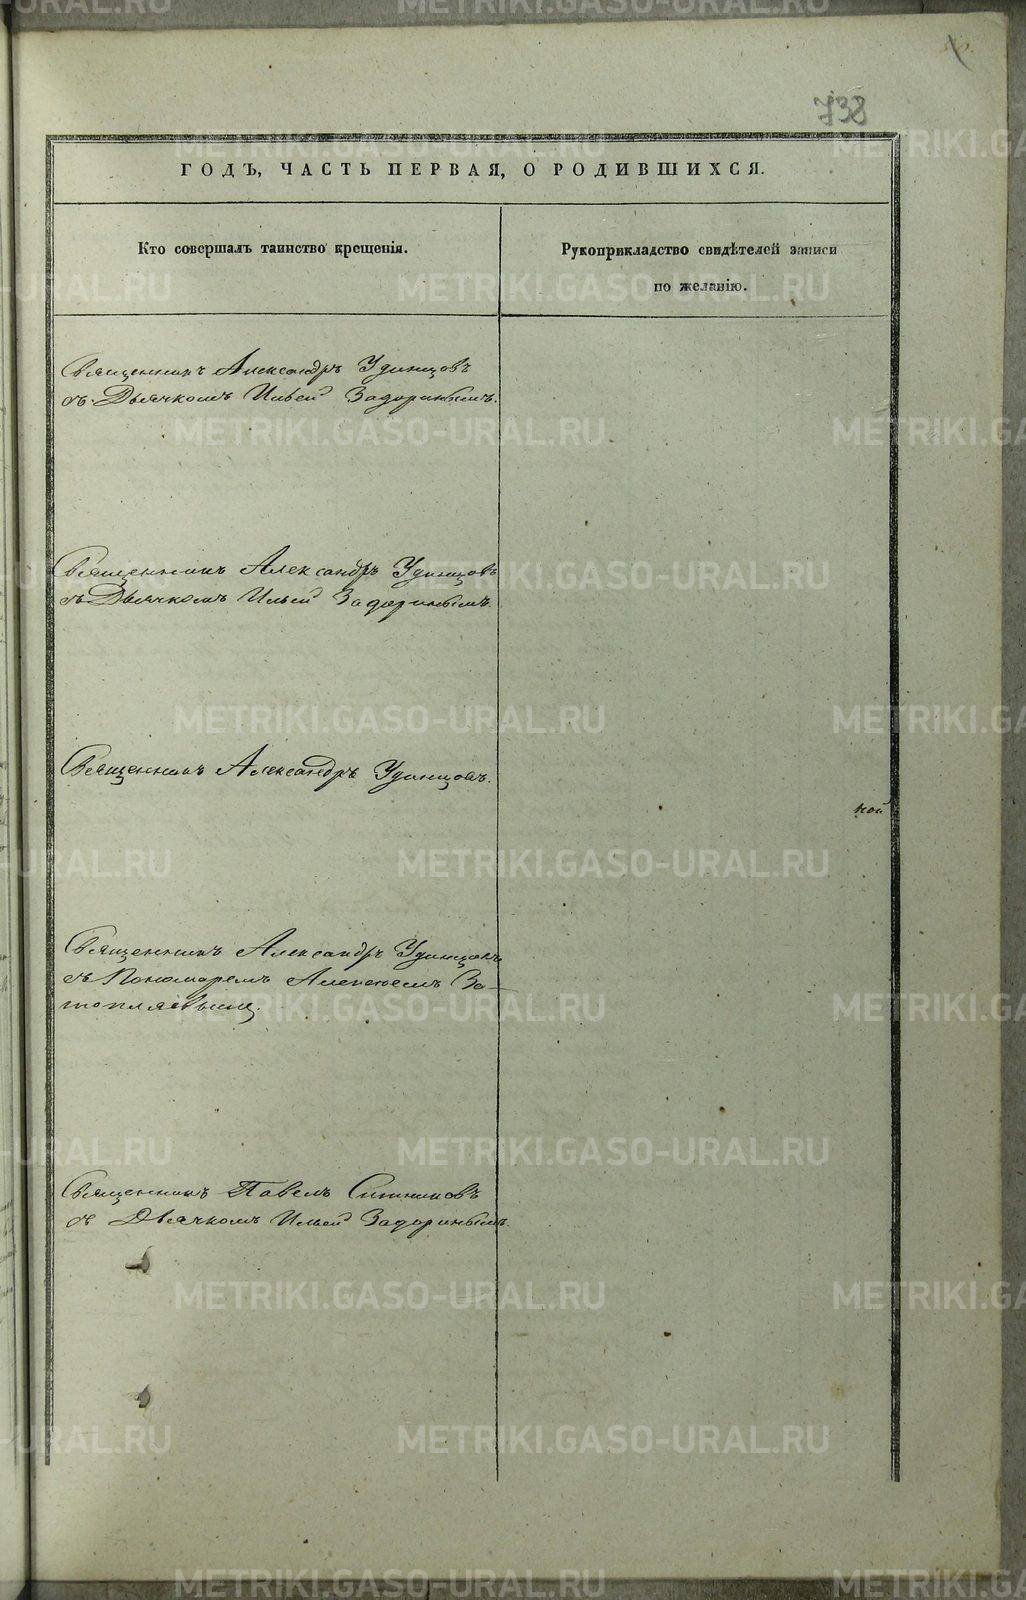 738
ГОДЪ, ЧАСТЬ ПЕРВАЯ, О РОДИВШИХСЯ.
Кто совершалъ таинство крещенія.
Рукоприкладство свидѣтелей записи
по желанію.
Священникъ Александръ Удинцовъ
съ Дьячкомъ Ильей Задоринымъ.
Священникъ Александръ Удинцовъ
съ Дьячкомъ Ильей Задоринымъ.
Священникъ Александръ Удинцовъ.
кой
Священникъ Александръ Удинцовъ
съ Пономаремъ Алексѣемъ За-
топляевымъ.
Священникъ Павелъ Ситниковъ
съ Дьячкомъ Ильей Задоринымъ.
METRIKI.GASO-URAL.RU